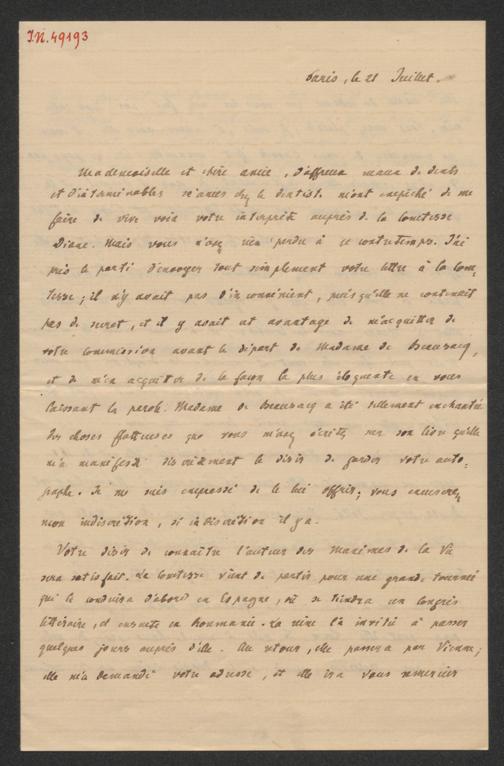 I.N. 49193
Paris, le 21 Juillet.
Mademoiselle et chère amie, d'affreux maux de dents
et d'interminables séances chez le dentiste m'ont empêché de me
faire de vive voix votre interprète auprès de la Comtesse
Diane. Mais vous n'avez rien perdu à ce contretemps. J'ai
pris le parti d'envoyer tout simplement votre lettre à la Com-
tesse; il n'y avait pas d'inconvénient, puisqu'elle ne contenait
pas de secret, et il y avait cet avantage de m'acquitter de
votre commission avant le départ de Madame de Beausacq,
et de m'en acquitter de la façon la plus éloquente en vous
laissant la parole. Madame de Beausacq a été tellement enchantée
des choses flatteuses que vous m'avez écrites sur son livre qu'elle
m'a manifesté discrètement le désir de garder votre auto-
graphe. Je me suis empressé de le lui offrir; vous excuserez
mon indiscrétion, si indiscrétion il y a.
Votre désir de connaître l'auteur des Maximes de la Vie
sera satisfait. La Comtesse vient de partir pour une grande tournée
qui la conduira d'abord en Espagne, où se tiendra un congrès
littéraire, et ensuite en Roumanie. La reine l'a invitée à passer
quelques jours auprès d'elle. Au retour, elle passera par Vienne;
elle m'a demandé votre adresse, et elle ira vous remercier